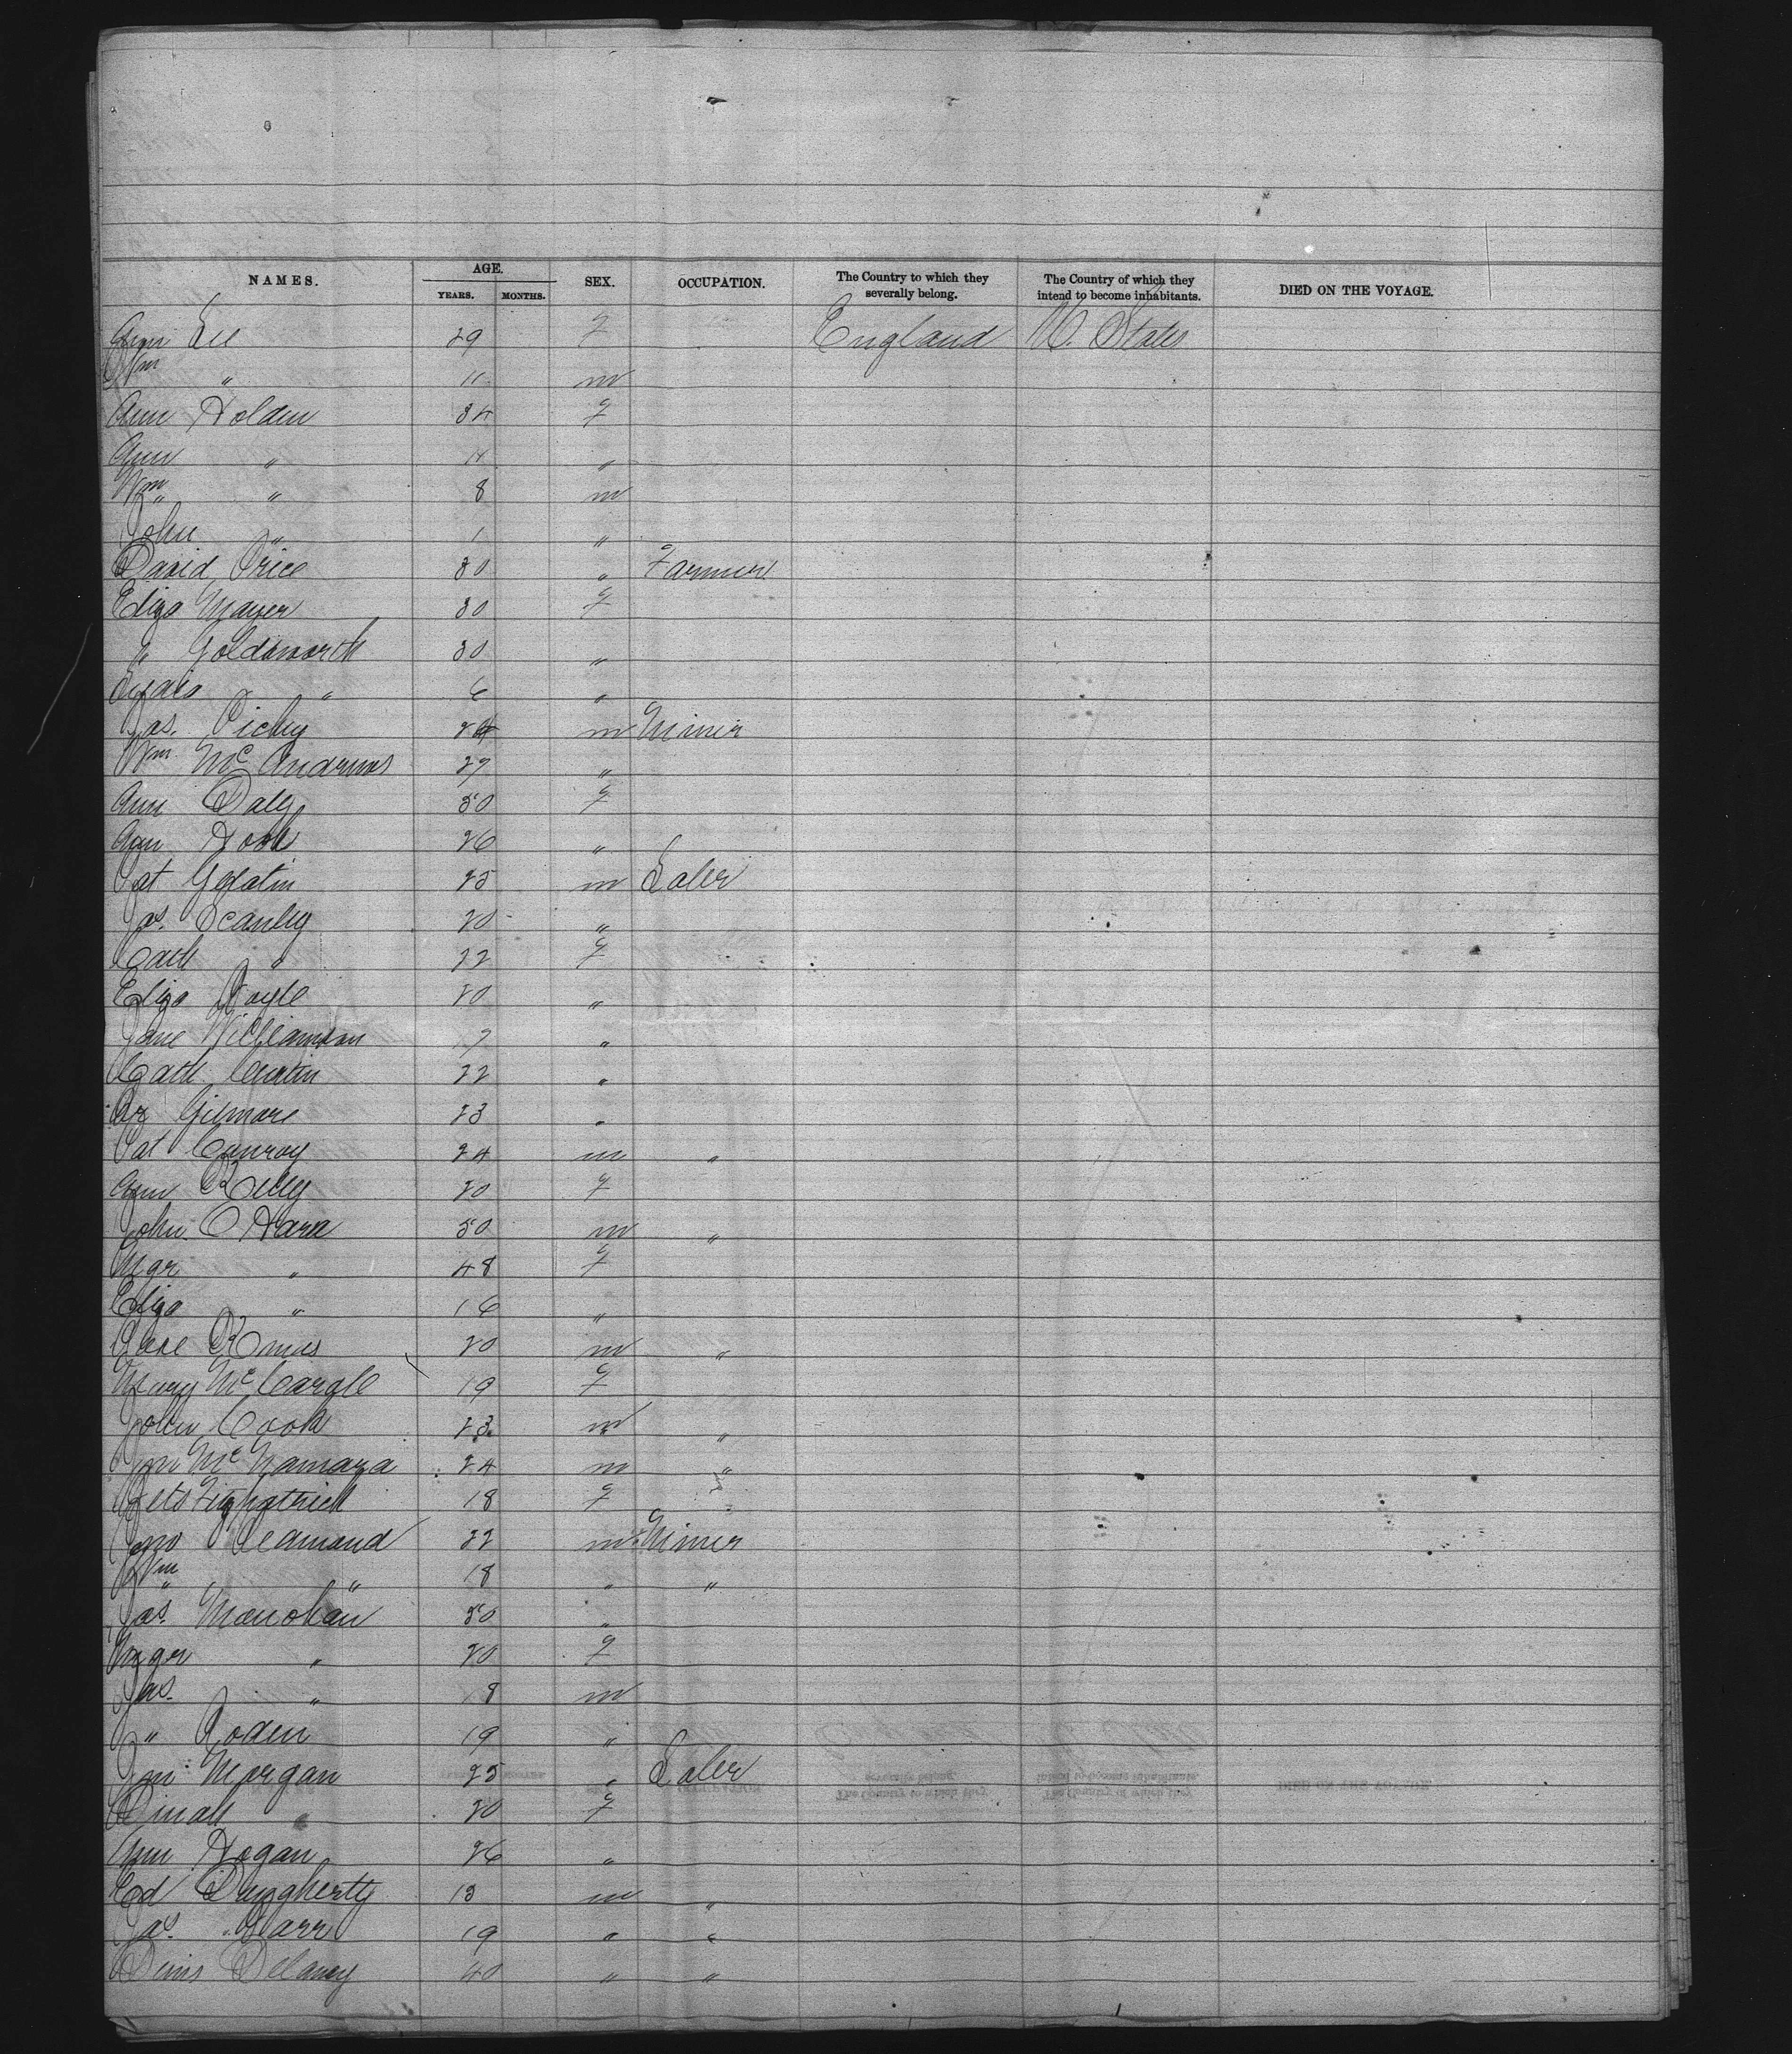 NAMES. AGE. YEARS. MONTHS. SEX. OCCUPATION. The Country to which they severally belong. The Country of which they intend to become inhabitants. DIED ON THE VOYAGE.
Ann Lee 29 f England U. States
Wm " 11 m
Ann Holden 34 f
Ann " 11 "
Wm " 8 m
John " 1 "
David Price 30 " Farmer
Eliza Mayer 30 f
" Goldsworth 30 "
" 6 "
Jas. 24 m Miner
Wm McAndrews 27 "
Ann Daly 50 f
Ann Hook 26 "
Pat 25 m Laber
Jas. Scanley 20 "
Cath " 22 f
Eliza Doyle 20 "
Jane Williamson 17 "
Cath Curtin 22 "
Gilmore 23 "
Pat Conroy 24 m "
Ann Reily 20 f
John O Hara 50 m "
Mgr " 48 f
Eliza " 16 "
20 m "
Mary McCargle 19 f
John Cook 23 m "
Jm McNamara 24 m "
Fitzpatrick 18 f
Jno Seamond 22 m Miner
Wm " 18 " "
Jas. Manohan 50 "
Mgr " 20 f
Jas. " 18 m
" Roden 19 "
Jm Morgan 25 " Laber
Dinah " 20 f
Ann Hogan 26 "
Ed Daugherty 13 m "
Jas. 19 " "
Dinis Delaney 40 " "